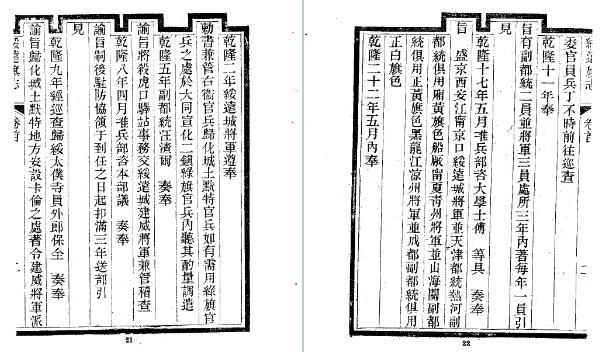 乾隆二年綏遠城將軍遵奉
勅書兼管右衞官兵歸化城土默特官兵如有需用綠旗官
兵之處於大同宣化二鎮綠旗官兵內聽其酌量調遣
乾隆五年副都統汪渣爾 奏奉
諭旨將殺虎口驛站事務交綏遠城建威將軍兼管稽查
乾隆八年四月准兵部咨本部議 奏奉
諭旨嗣後駐防協領于到任之日起扣滿三年送部引
見
乾隆九年經巡查歸綏太僕寺員外郎保全 奏奉
諭旨歸化城土默特地方安設卡倫之處著令建威將軍派
綏遠旗志 卷首 二
21
綏遠旗志 卷首 二
委官員兵丁不時前往巡查
乾隆十一年奉
旨有副都統二員並將軍三員處所三年內著每年一員引
見
乾隆十七年五月准兵部咨大學士傅 等具 奏奉
旨 盛京西安江甯京口綏遠城將軍並天津都統熱河副
都統俱用廂黃旗色船廠甯夏青州將軍並山海關副都
統俱用正黃旗色黑龍江涼州將軍並成都副都統俱用
正白旗色
乾隆二十二年五月內奉
22